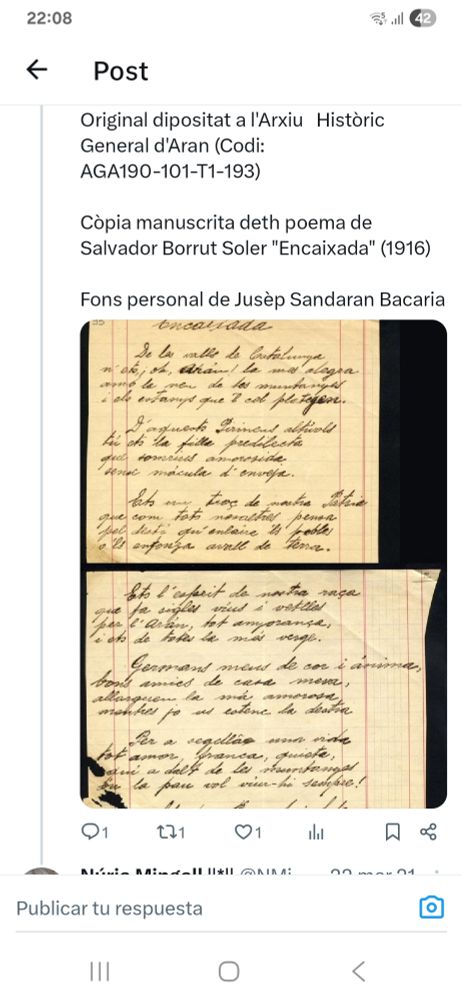 22:08
42
Post
Original dipositat a l'Arxiu Històric
General d'Aran (Codi:
AGA190-101-T1-193)
Còpia manuscrita deth poema de
Salvador Borrut Soler "Encaixada" (1916)
Fons personal de Jusèp Sandaran Bacaria
Encaixada
De les valls de Catalunya
n'ets, oh, Aran! la mes alegra
amb la neu de les muntanyes
i els estanys que'l cel
D'aquests Pirineus altívols
tú ets la filla predilecta
que somrius amorosida
sens mácula d'enveja.
Ets un troç de nostra Patria
que com tots nosaltres pensa
pel destí qu'enlaire 'ls pobles
o'ls enfonza avall de terra.
Ets l'esperit de nostra raça
que fa sigles vius i vetlles
per l'Arán, tot anyorança,
i ets de totes la més verge.
Germans meus de cor i ánima,
bons amics de casa meva,
allargueu la má amorosa,
mentres jo us estenc la destra
Per a segellar una vida
tot amor, franca, quieta,
aquí a dalt de les muntanyes
on la pau vol viure-hi sempre!
1
1
1
Publicar tu respuesta